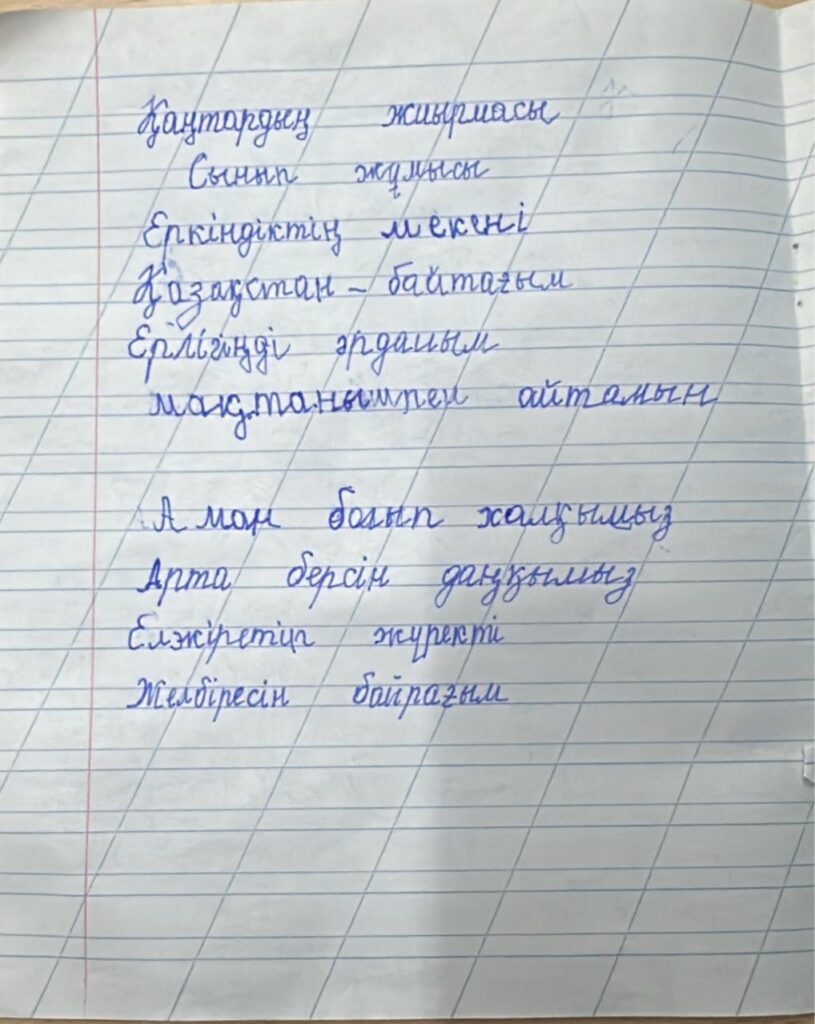 Қаңтардың жиырмасы
Сынып жұмысы
Еркіндіктің мекені
Қазақстан – байтағым
Ерлігіңді әрдайым
мақтанышпен айтамын
Аман болып халқымыз
Арта берсін даңқымыз
Елжіретіп жүректі
Желбіресін байрағым